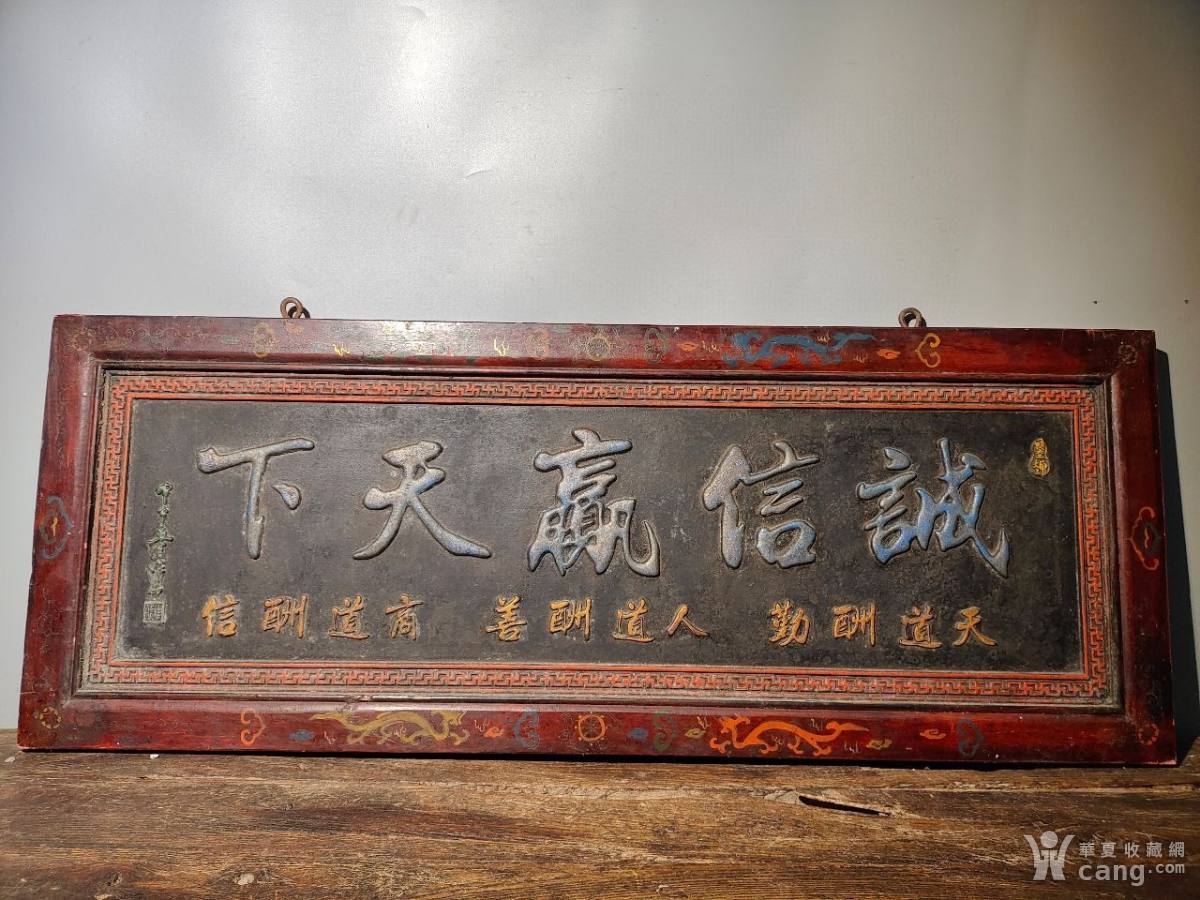 誠信贏天下
天道酬勤 人道酬善 商道酬信
華夏收藏網
cang.com